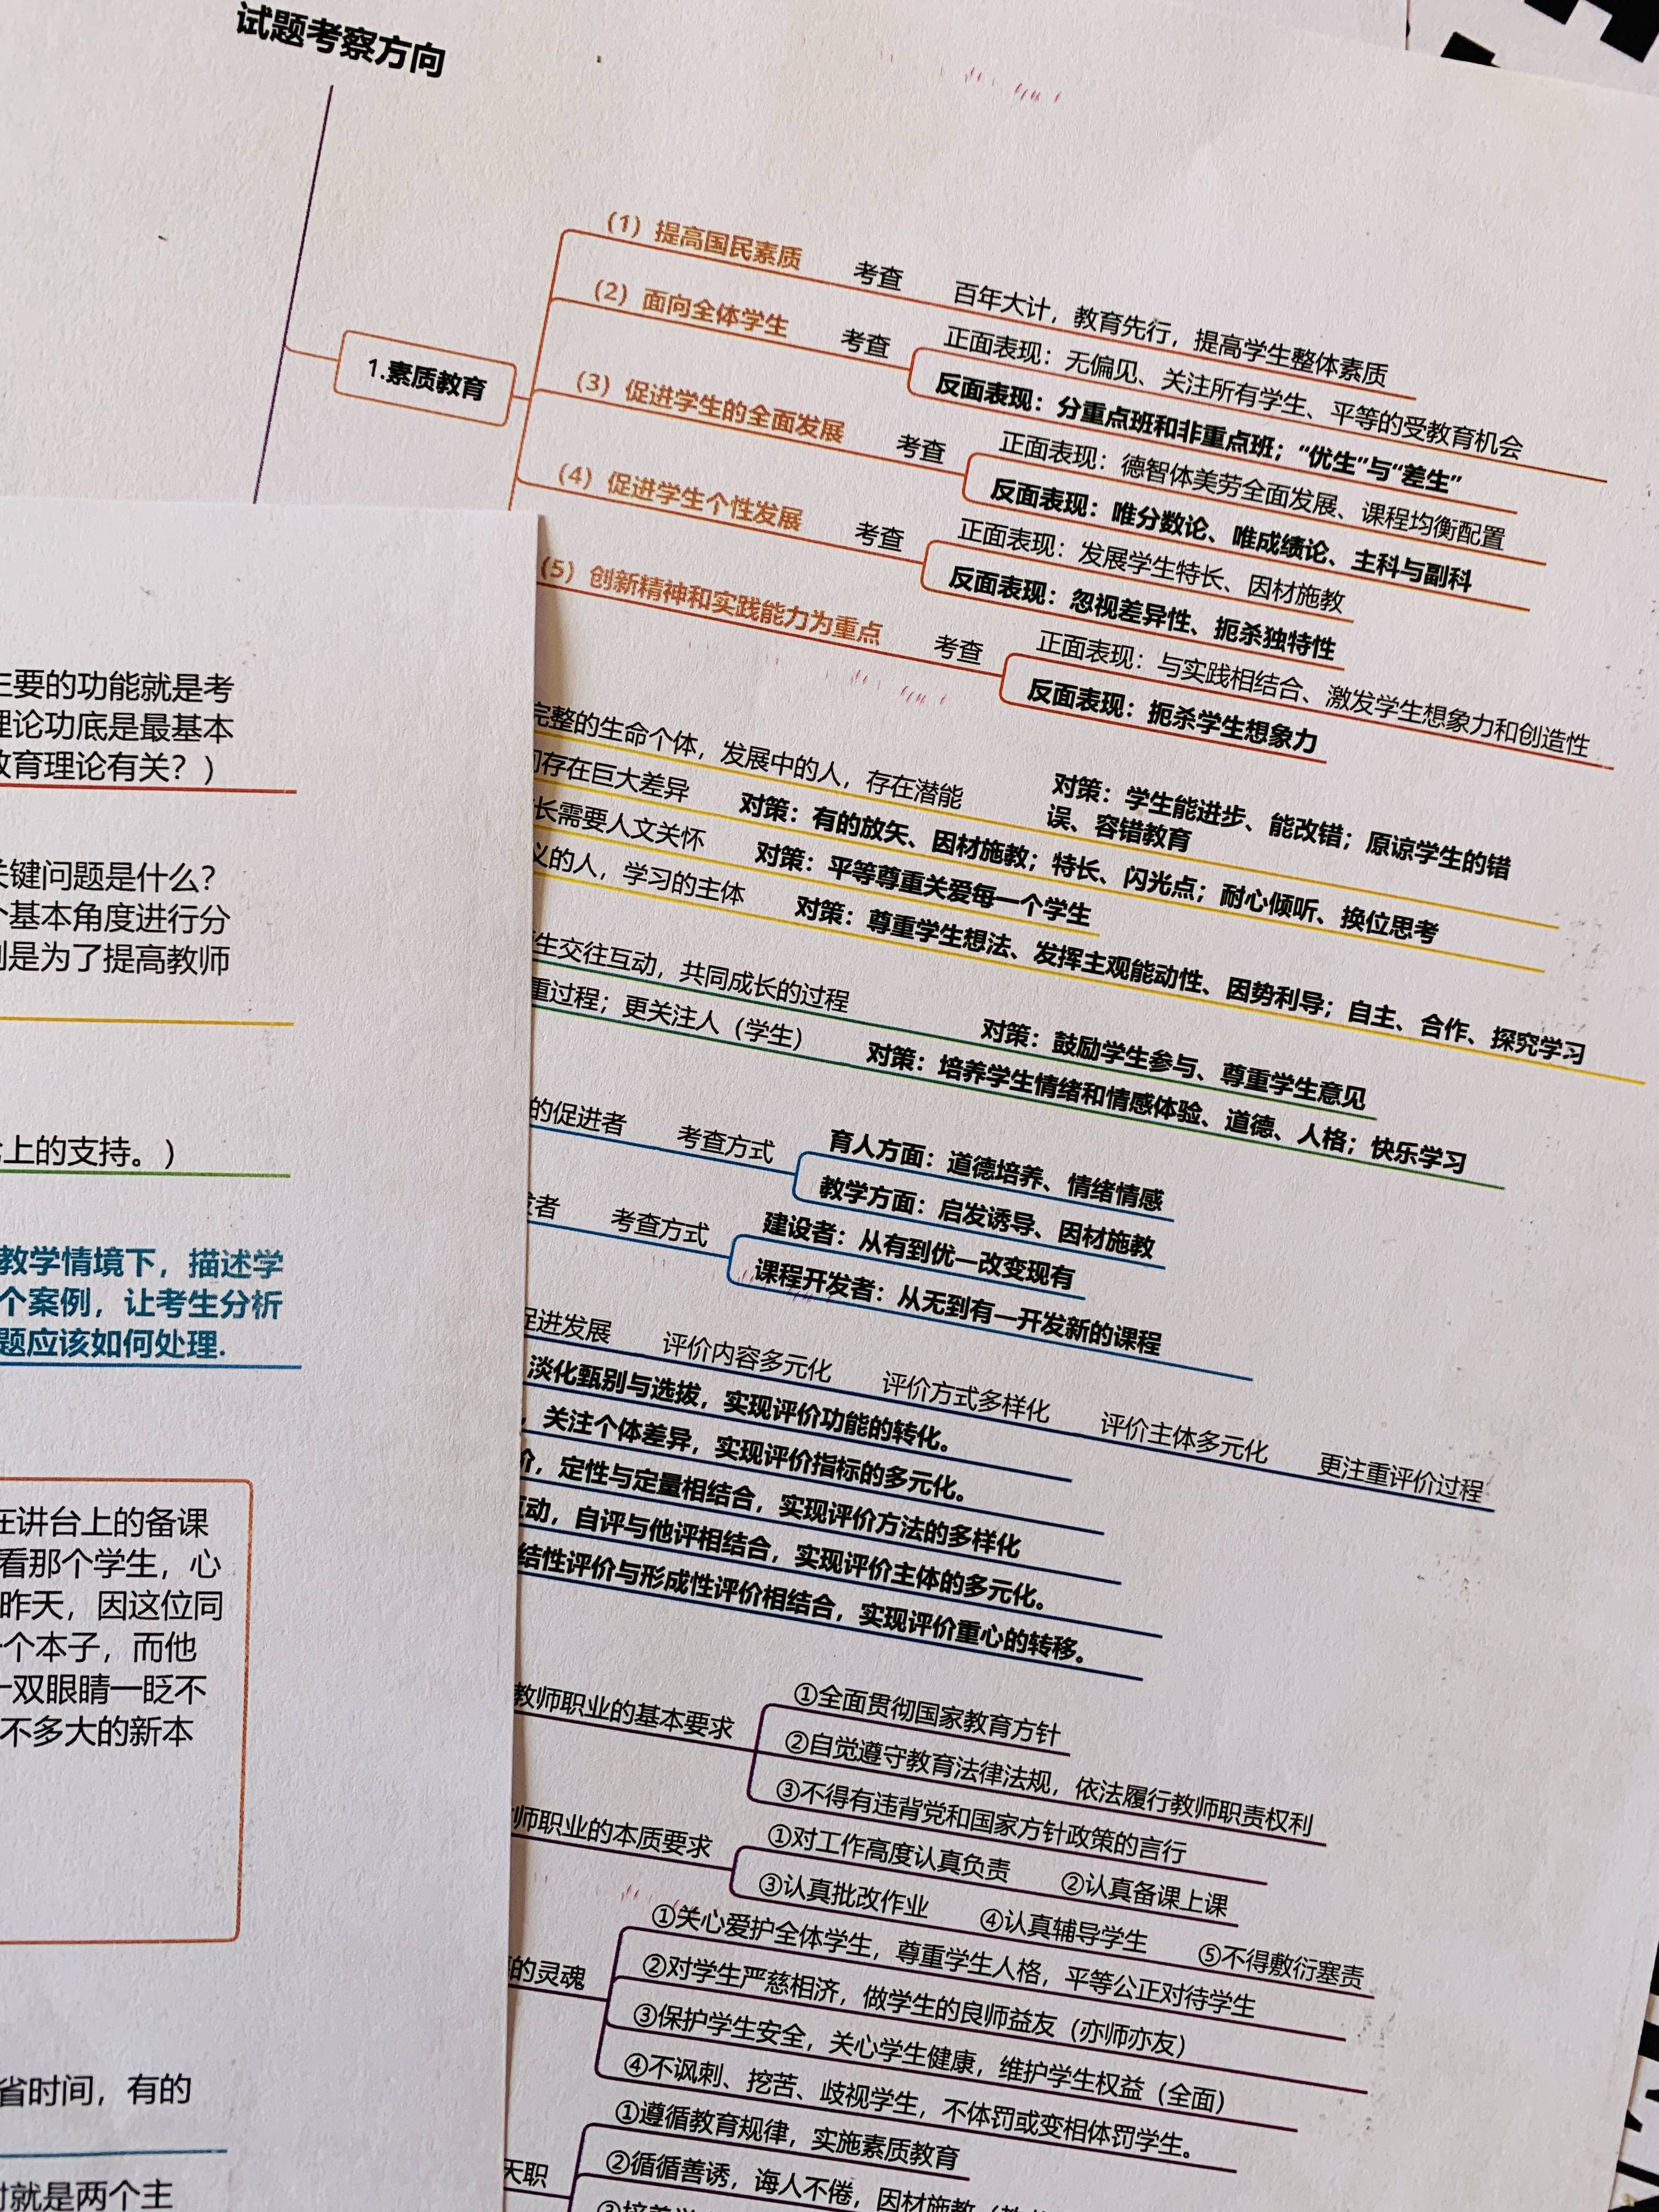 试题考察方向
1.素质教育
(1) 提高国民素质
考查
百年大计，教育先行，提高学生整体素质
(2) 面向全体学生
考查
正面表现：无偏见、关注所有学生、平等的受教育机会
反面表现：分重点班和非重点班；“优生”与“差生”
(3) 促进学生的全面发展
考查
正面表现：德智体美劳全面发展、课程均衡配置
反面表现：唯分数论、唯成绩论、主科与副科
(4) 促进学生个性发展
考查
正面表现：发展学生特长、因材施教
反面表现：忽视差异性、扼杀独特性
(5) 创新精神和实践能力为重点
考查
正面表现：与实践相结合、激发学生想象力和创造性
反面表现：扼杀学生想象力
完整的生命个体，发展中的人，存在潜能
对策：学生能进步、能改错；原谅学生的错
误、容错教育
存在巨大差异
对策：有的放矢、因材施教；特长、闪光点；耐心倾听、换位思考
长需要人文关怀
对策：平等尊重关爱每一个学生
义的人，学习的主体
对策：尊重学生想法、发挥主观能动性、因势利导；自主、合作、探究学习
生交往互动，共同成长的过程
对策：鼓励学生参与、尊重学生意见
重过程；更关注人（学生）
对策：培养学生情绪和情感体验、道德、人格；快乐学习
的促进者
考查方式
育人方面：道德培养、情绪情感
教学方面：启发诱导、因材施教
者
考查方式
建设者：从有到优—改变现有
课程开发者：从无到有—开发新的课程
促进发展
评价内容多元化
评价方式多样化
评价主体多元化
更注重评价过程
淡化甄别与选拔，实现评价功能的转化。
，关注个体差异，实现评价指标的多元化。
价，定性与定量相结合，实现评价方法的多样化
互动，自评与他评相结合，实现评价主体的多元化。
结性评价与形成性评价相结合，实现评价重心的转移。
教师职业的基本要求
①全面贯彻国家教育方针
②自觉遵守教育法律法规，依法履行教师职责权利
③不得有违背党和国家方针政策的言行
师职业的本质要求
①对工作高度认真负责
②认真备课上课
③认真批改作业
④认真辅导学生
⑤不得敷衍塞责
的灵魂
①关心爱护全体学生，尊重学生人格，平等公正对待学生
②对学生严慈相济，做学生的良师益友（亦师亦友）
③保护学生安全，关心学生健康，维护学生权益（全面）
④不讽刺、挖苦、歧视学生，不体罚或变相体罚学生。
天职
①遵循教育规律，实施素质教育
②循循善诱，诲人不倦，因材施教
主要的功能就是考
理论功底是最基本
教育理论有关？）
关键问题是什么？
个基本角度进行分
是为了提高教师
上的支持。）
教学情境下，描述学
个案例，让考生分析
题应该如何处理.
在讲台上的备课
看那个学生，心
昨天，因这位同
个本子，而他
一双眼睛一眨不
不多大的新本
省时间，有的
就是两个主